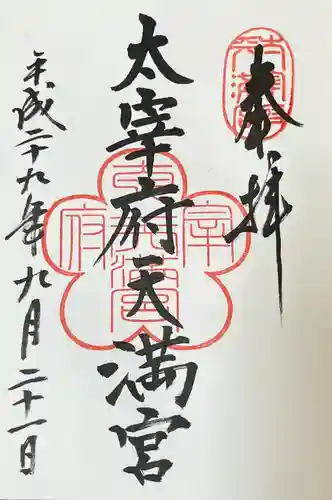 奉拝
太宰府天満宮
平成二十九年九月二十一日